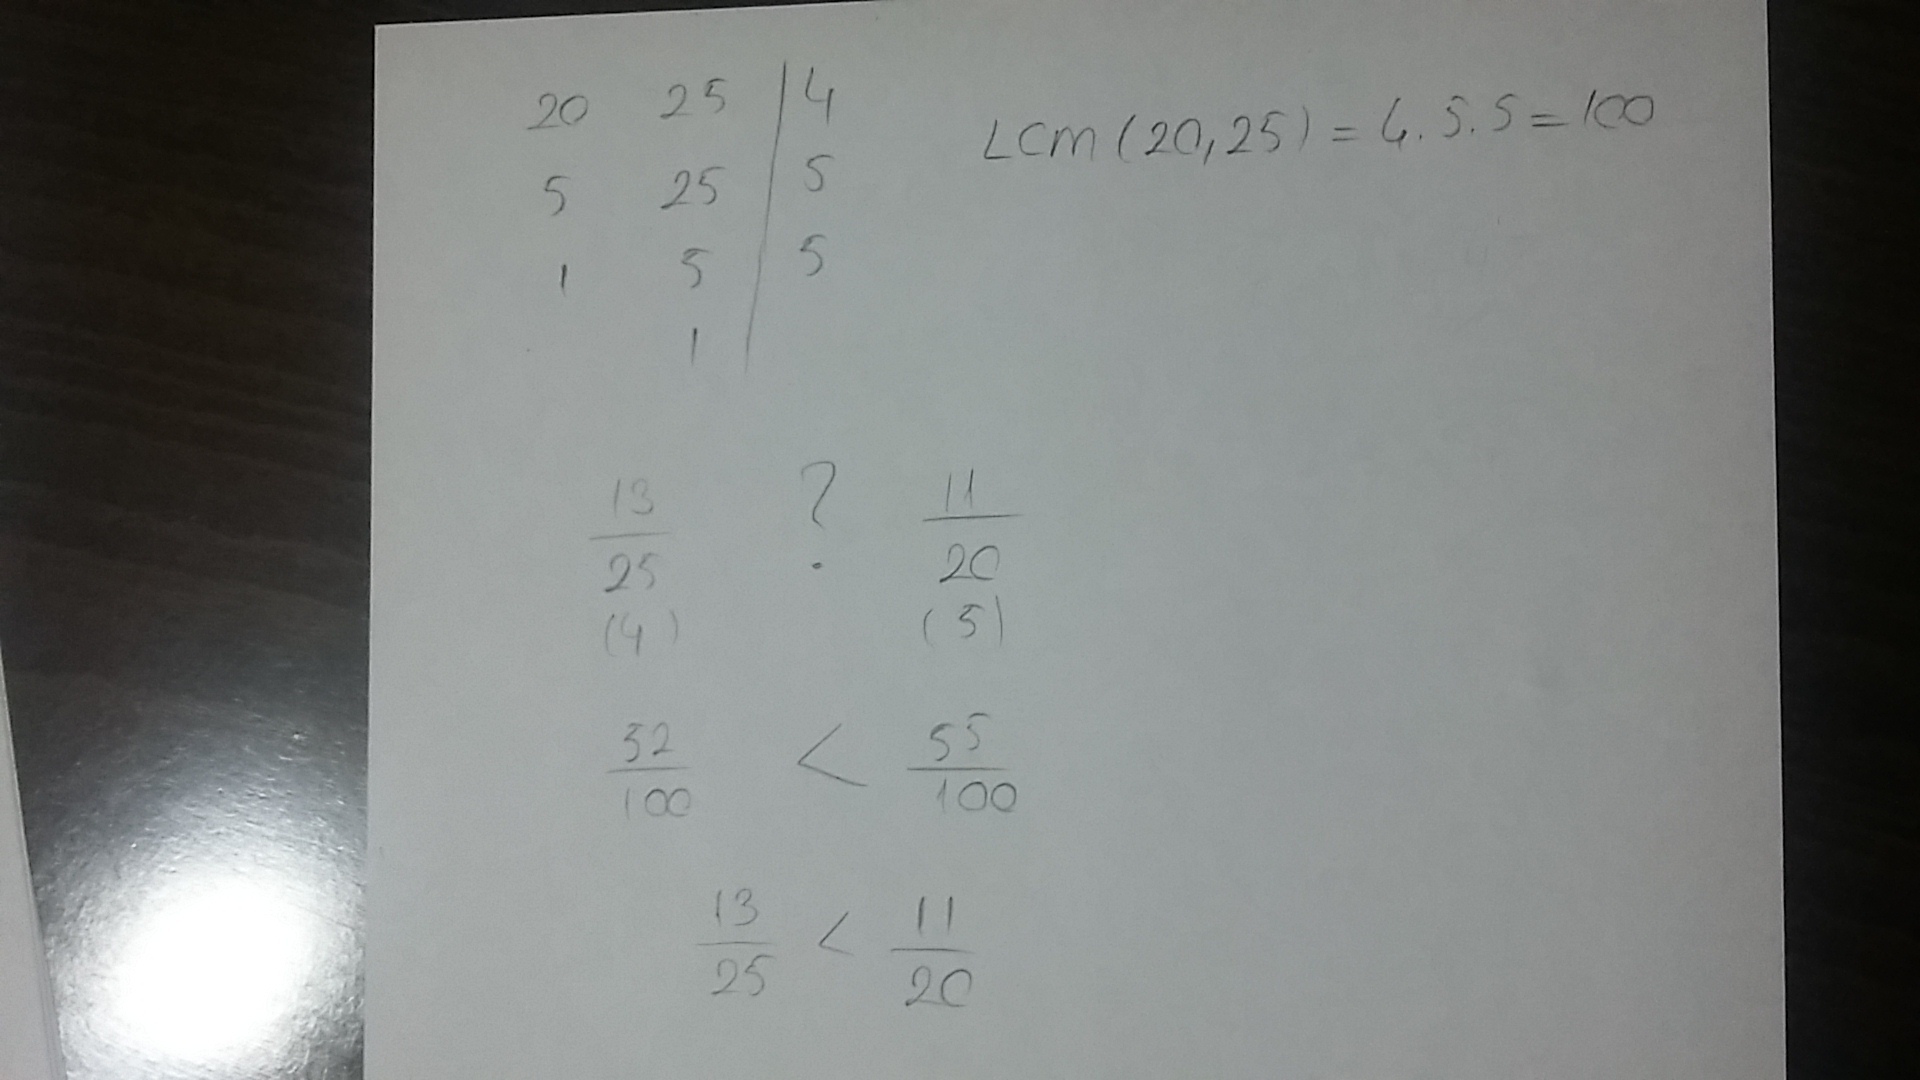 20 25 | 4
5 25 | 5
1 5 | 5
1 |
LCM (20,25) = 4.5.5 = 100
13/25 ? 11/20
(4) (5)
52/100 < 55/100
13/25 < 11/20